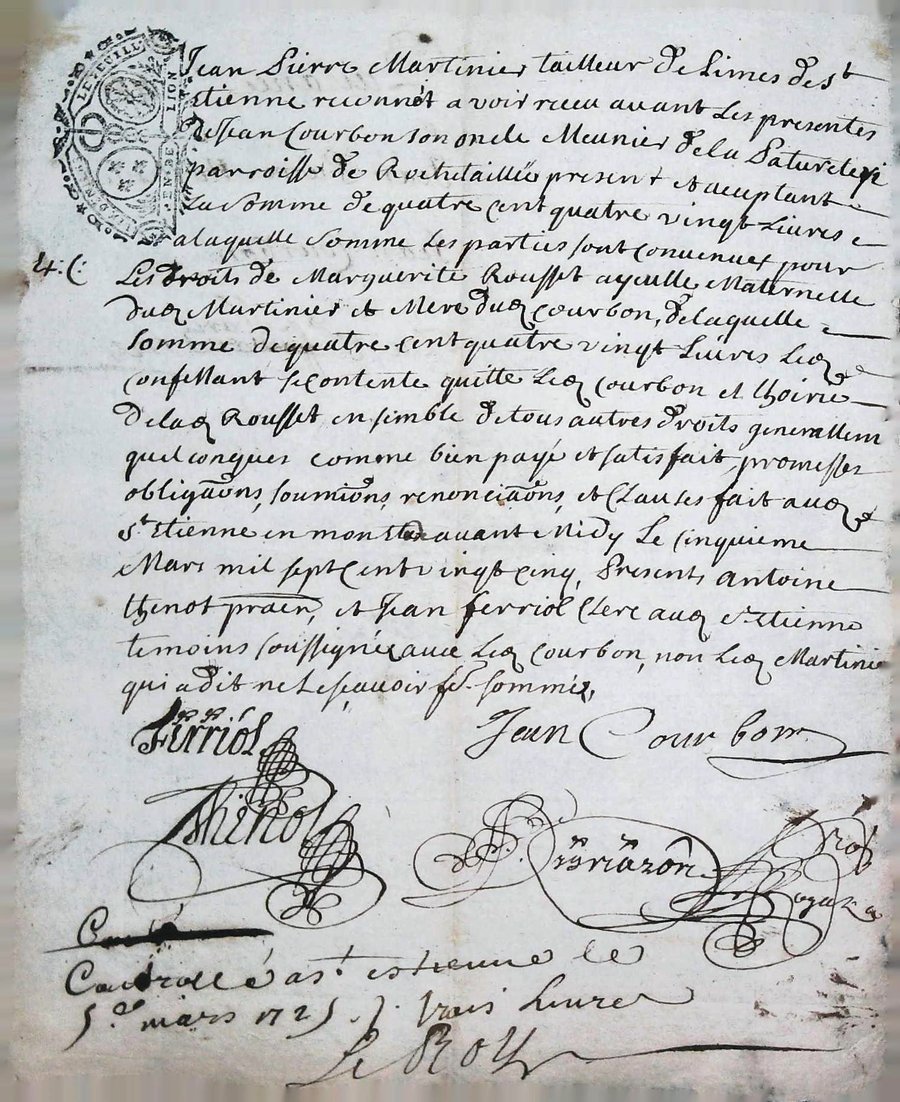 LA FEUILL
GENRE. LION
Jean Pierre Martinier tailleur de Limes de St
Etienne reconnêt avoir receu avant Les presentes
de Jean Courbon son oncle Meunier de la
parroisse de Rochetaillée present et aceptant
La somme de quatre cent quatre vingt Livres
a laquelle somme Les parties sont convenues pour
4: C:
Les droits de Marguerite Rousset ayeulle Maternelle
dud Martinier et Mere dud Courbon, de laquelle
somme de quatre cent quatre vingt Livres Led
confessant se contente quitte Led Courbon et Lhoirie
de lad Rousset ensemble de tous autres droits generallem
quelconques comme bien payé et satisfait, promesses
obligaôns, soumiôns, renonciaôns, et clauses fait aud
St Etienne en mon avant Midy Le cinquieme
Mars mil sept cent vingt cinq, Presents Antoine
thenot praen, et Jean ferriol clerc aud St Etienne
temoins soussignés avec Led Courbon, non Led Martinie
qui a dit ne Le sçavoir
Ferriol
Jean Courbon
Thenot
Controllé a st estienne le
5.e mars 1725. trois Livres
Le Roy